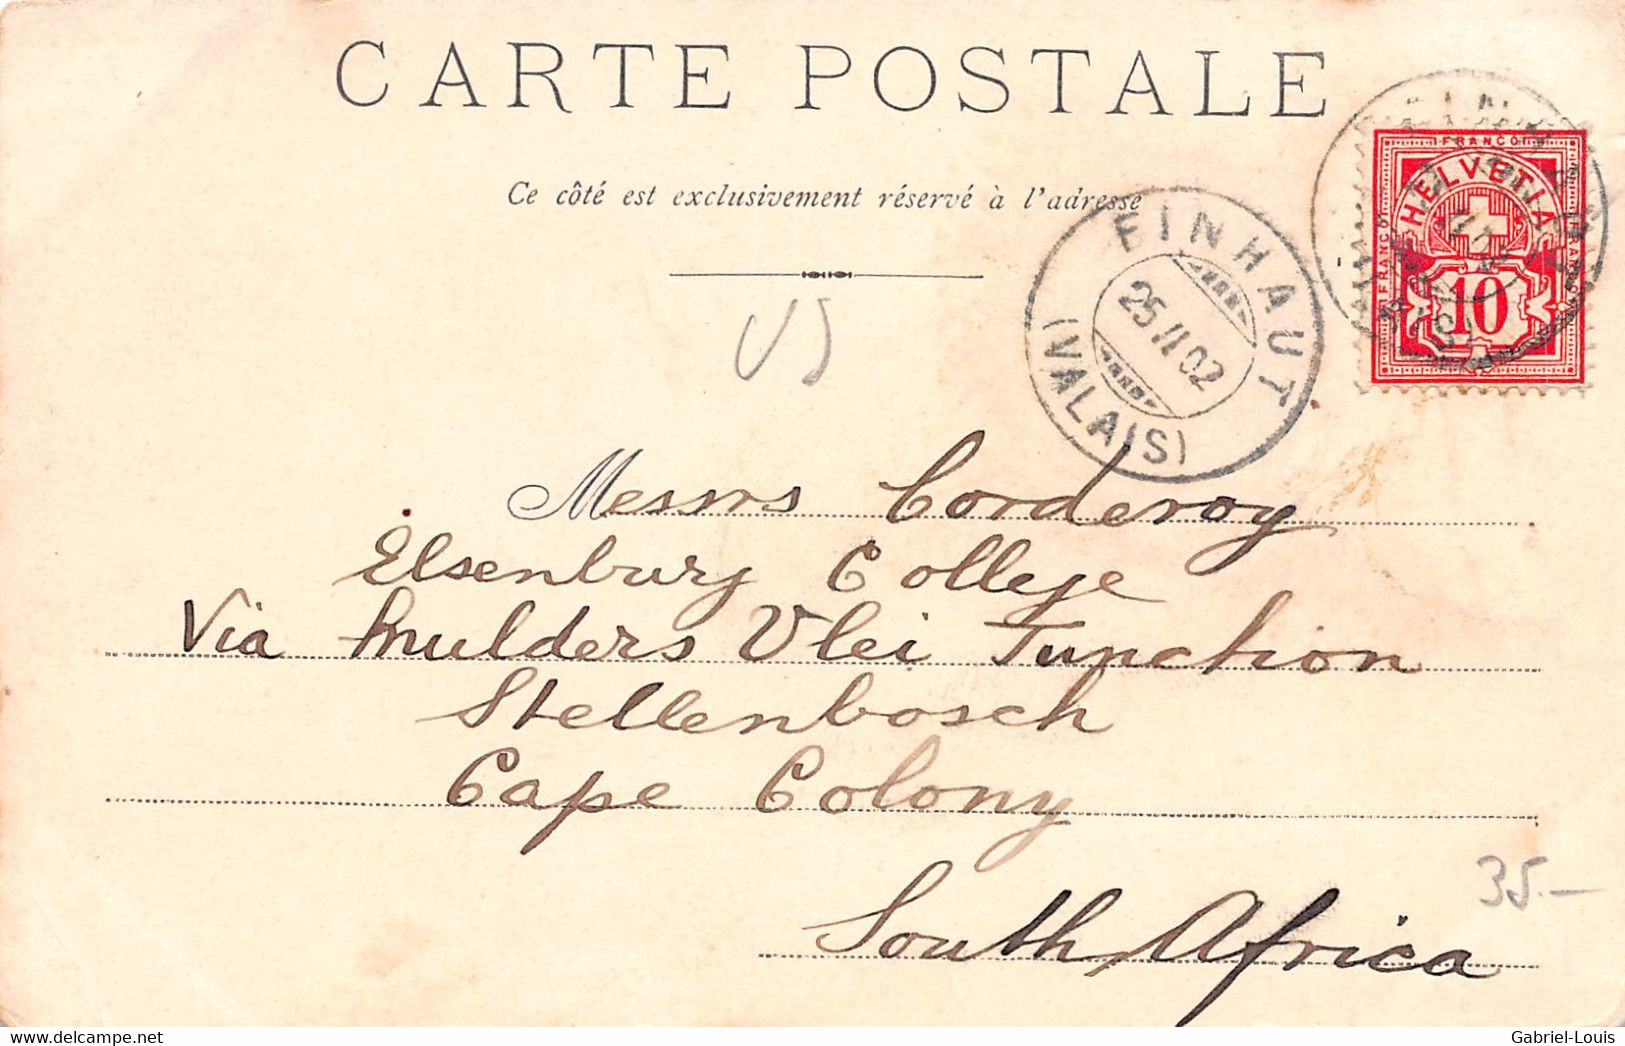 CARTE POSTALE
Ce côté est exclusivement réservé à l'adresse
FRANCO
HELVETIA
FRANCO
FRANCO
10
FINHAUT
25 II 02
(VALAIS)
Messrs Corderoy
Elsenburg College
Via Mulders Vlei Junction
Stellenbosch
Cape Colony
South Africa
35.-
www.delcampe.net
Gabriel-Louis